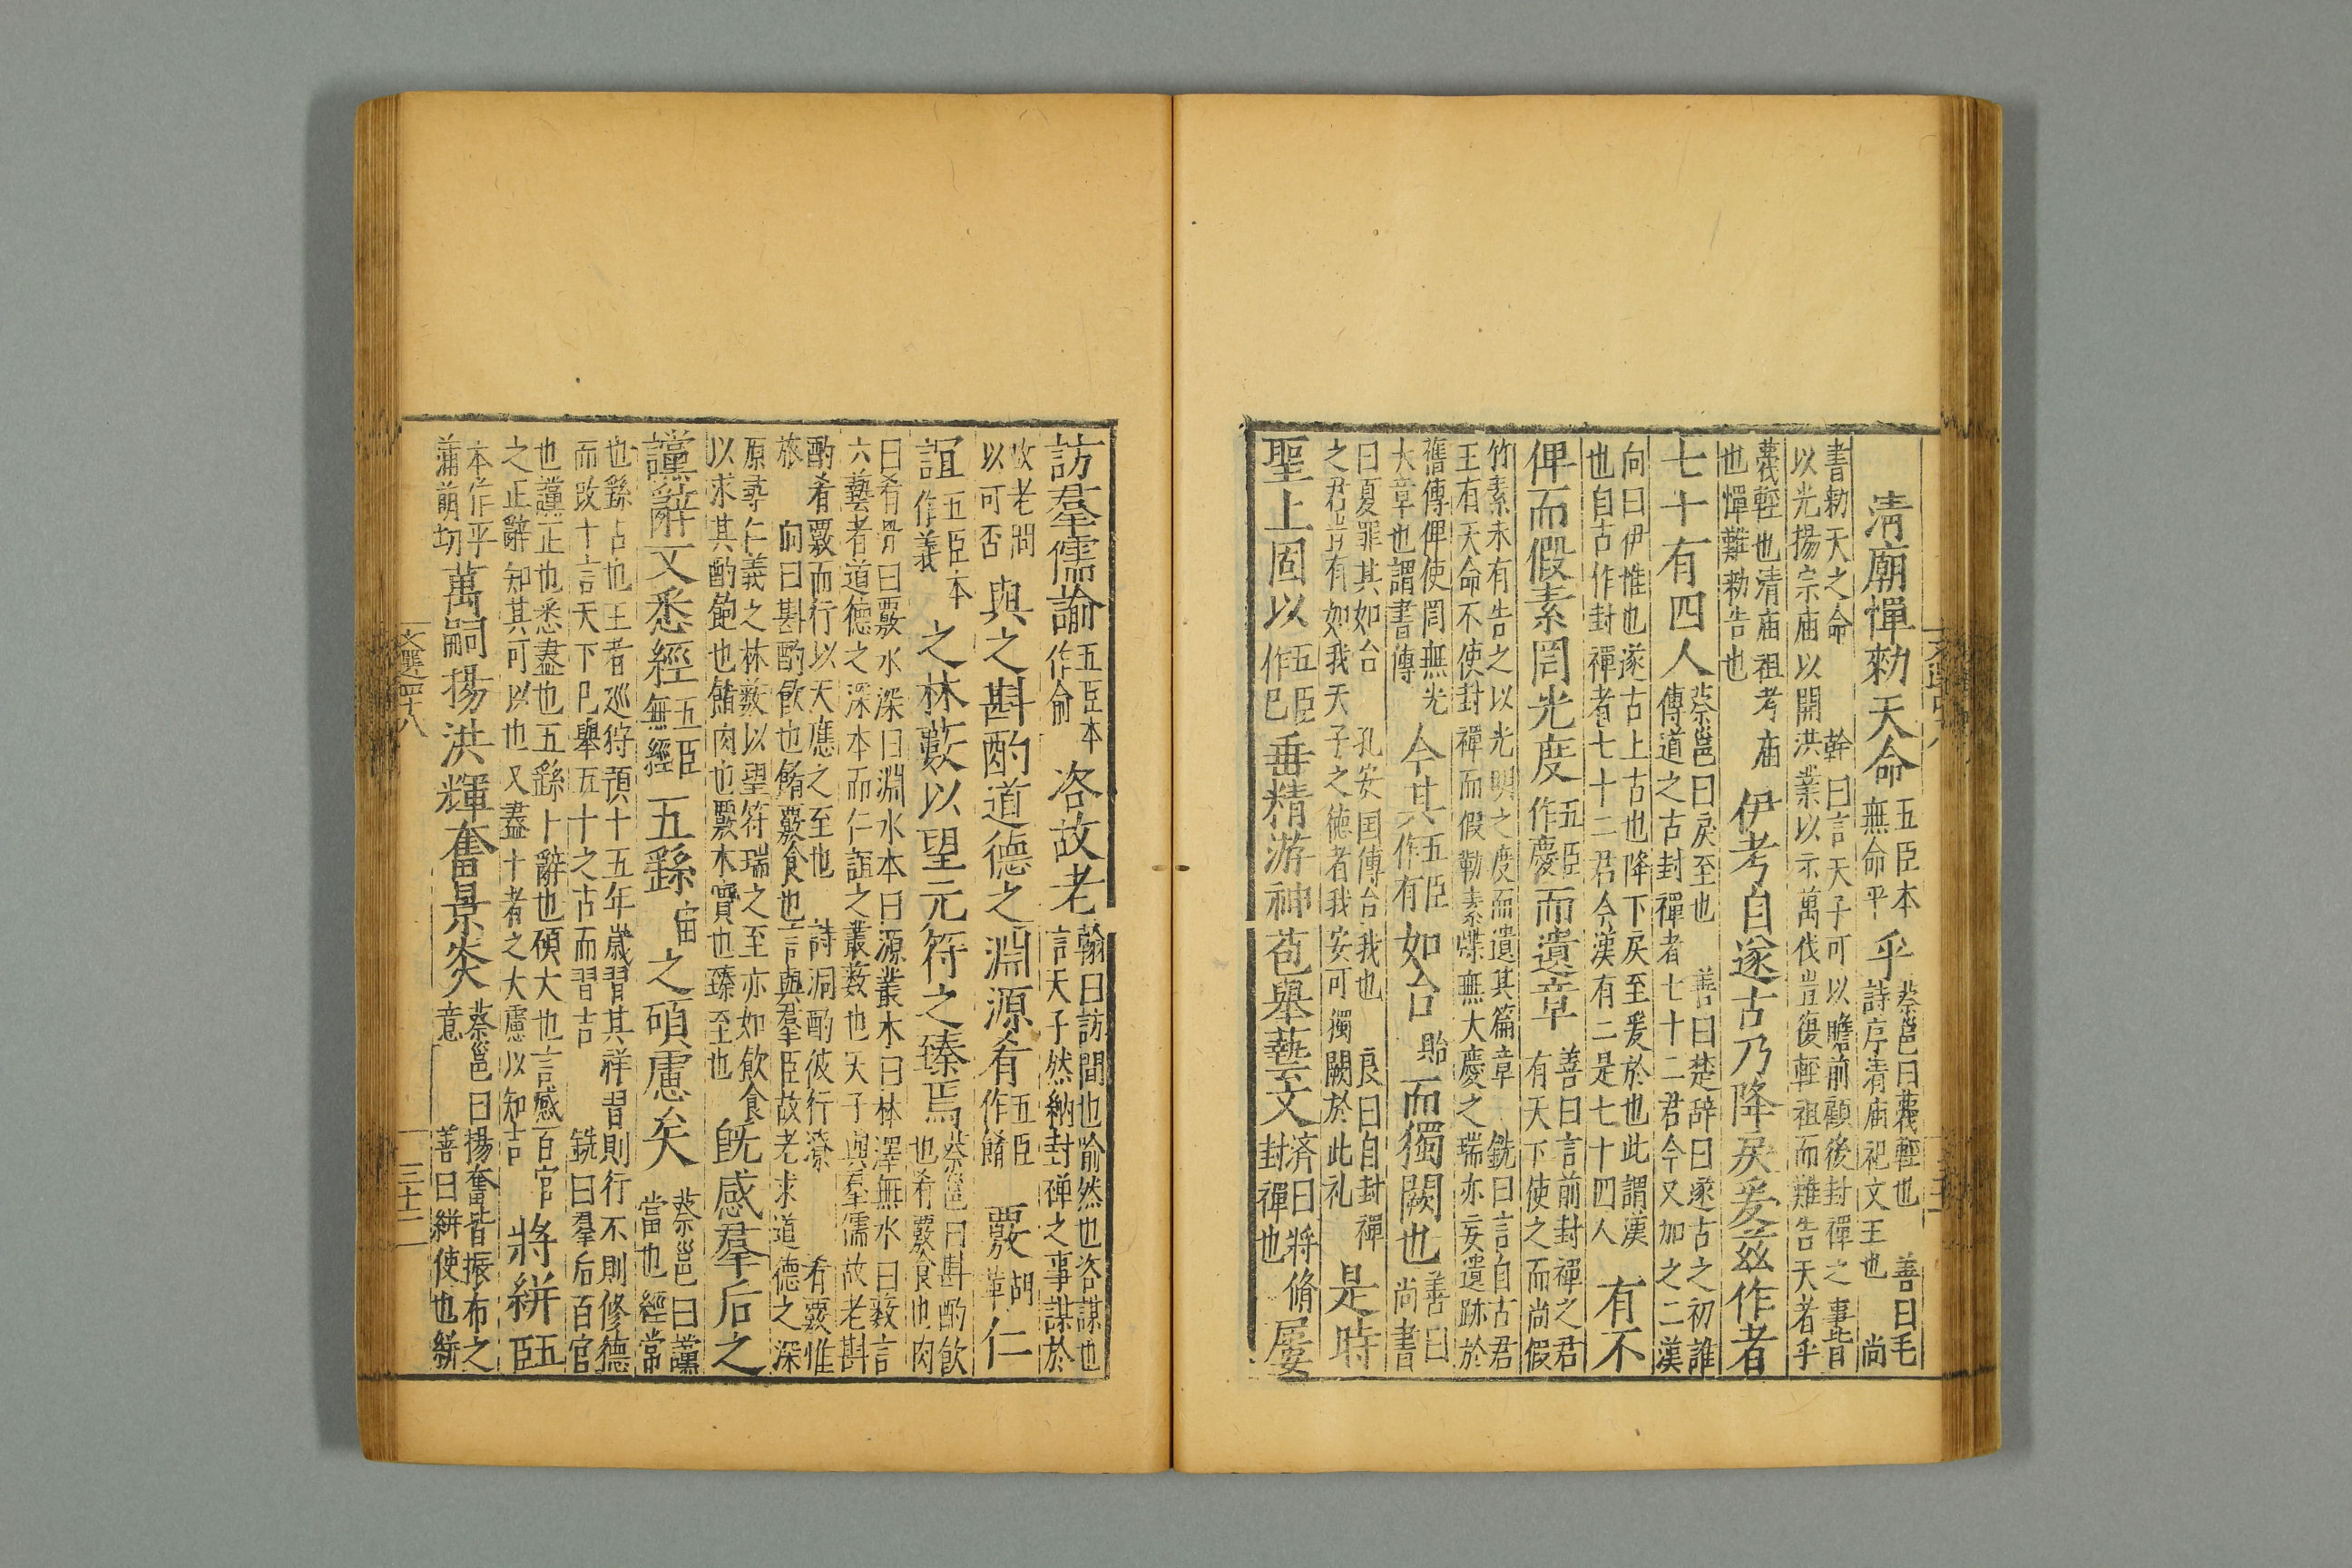 清廟憚勑天命五臣本無命平乎蔡邕曰蔑輕也詩序清庙祀文王也善曰毛尚
書勑天之命以光揚宗庙以開洪業以示萬伐岂復輕祖而難告天者乎翰曰言天子可以瞻前顧後封禪之事皆
蔑輕也清庙祖考庙也憚難勑告也伊考自遂古乃降戾爰兹作者
七十有四人蔡邕曰戾至也傳道之古封禪者七十二君今又加之二漢善曰楚辞曰遂古之初誰
向曰伊惟也遂古上古也降下戾至爰於也此謂漢也自古作封禪者七十二君今漢有二是七十四人有不
俾而假素罔光度五臣作慶而遺章善曰言前封禪之君有天下使之而尚假
竹素未有告之以光明之度而遺其篇章王有天命不使封禪而假勒素牒無大慶之瑞亦妄遺跡於銑曰言自古君
舊傳俾使罔無光大章也謂書傳今其五臣作有如台貽而獨闕也善曰尚書
曰夏罪其如台孔安国傳台我也之君岂有如我天子之德者我安可獨闕於此礼良曰自封禪是時
聖上固以五臣作已垂精游神苞舉藝文済曰將脩封禪也屢
訪羣儒諭五臣本作俞咨故老翰曰訪間也喻然也咨謀也言天子然納封禅之事謀於
故老润以可否與之斟酌道德之淵源肴五臣作餚覈胡革仁
誼五臣本作義之林藪以望元符之臻焉蔡邕曰斟酌飮也肴覈食也肉
曰肴骨曰覈水深曰淵水本曰源叢木曰林澤無水曰藪言六藝者道德之深本而仁誼之叢薮也天子與羣儒故老斟
酌肴覈而行以天應之至也詩洞酌彼行潦肴覈惟旅向曰斟酌飮也餚覈食也言與羣臣故老求道德之深
原尋仁義之林薮以望符瑞之至亦如飲食以求其酌飽也餚肉也覈木實也臻至也旣感羣后之
讜辭文悉經五臣無經五繇宙之碩慮矣蔡邕曰讜當也經常
也繇占也王者巡狩預十五年歲習其祥習則行不則修德而改十言天下已舉五十之古而習吉銑曰羣后百官
也讜正也悉盡也五繇卜辭也碩大也言感百官之正辭知其可以也又盡十者之大慮以知吉將絣五臣
本作平蒲萌切萬嗣揚洪輝奮景炎蔡邕曰揚奮皆振布之意善曰絣使也絣
文選四十八
三十二